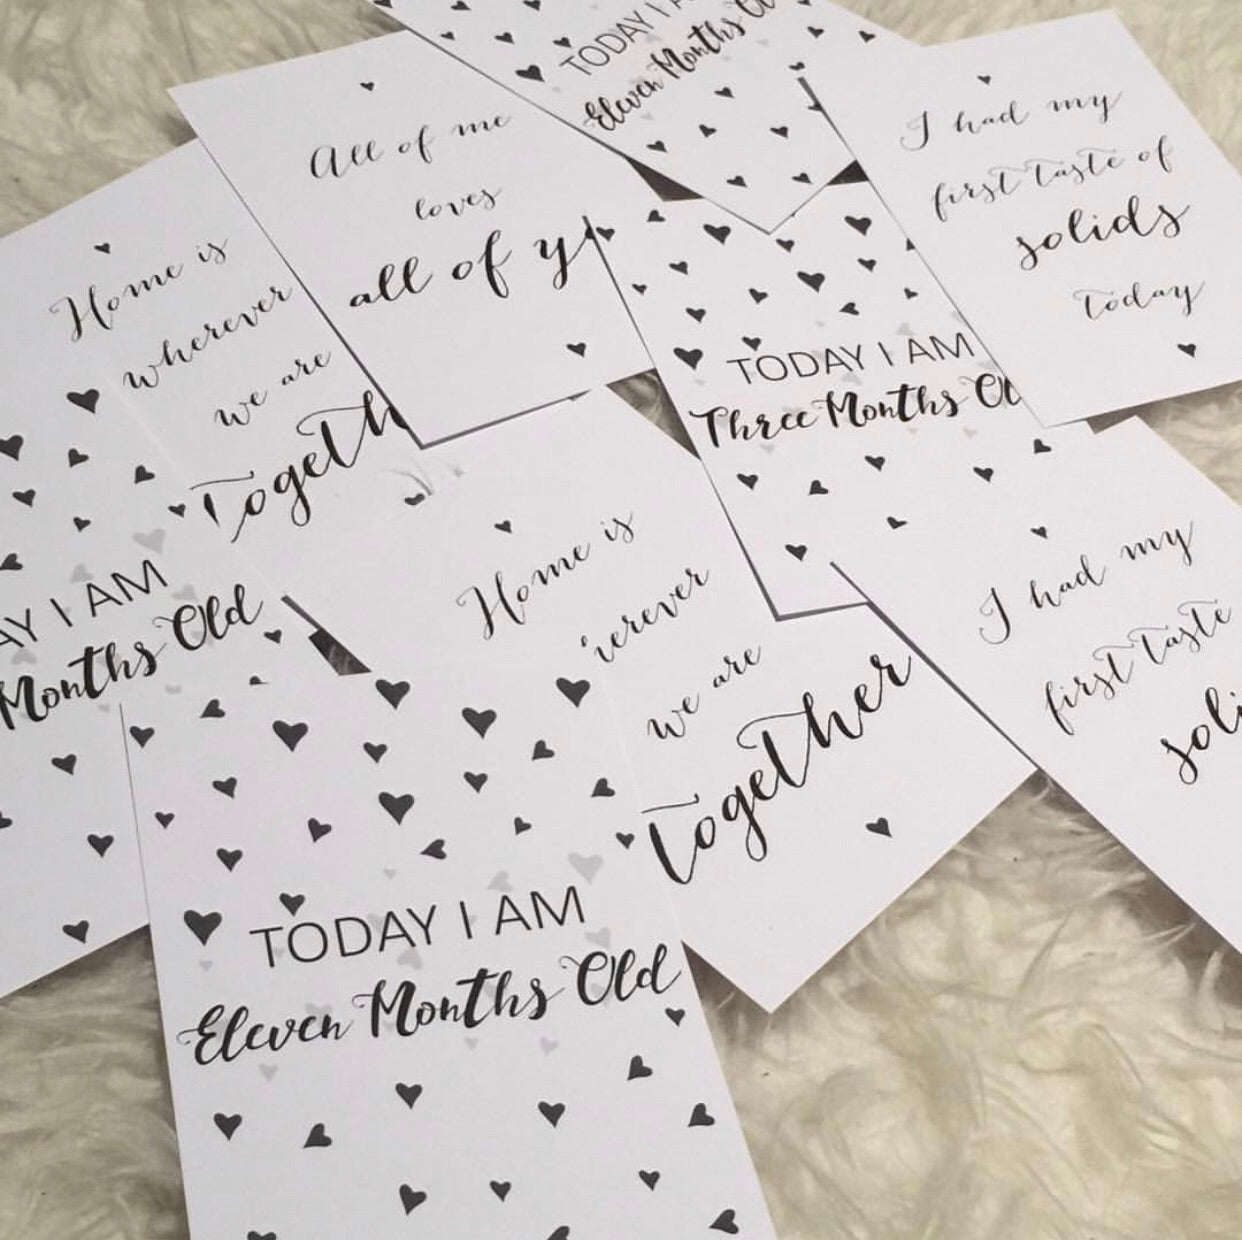 TODAY I
Eleven Months
All of me
loves
all of
I had my
first taste of
solids
today
Home is
wherever
we are
TODAY I AM
Three Months
I AM
Months Old
Home is
we are
together
I had my
first taste
TODAY I AM
Eleven Months Old